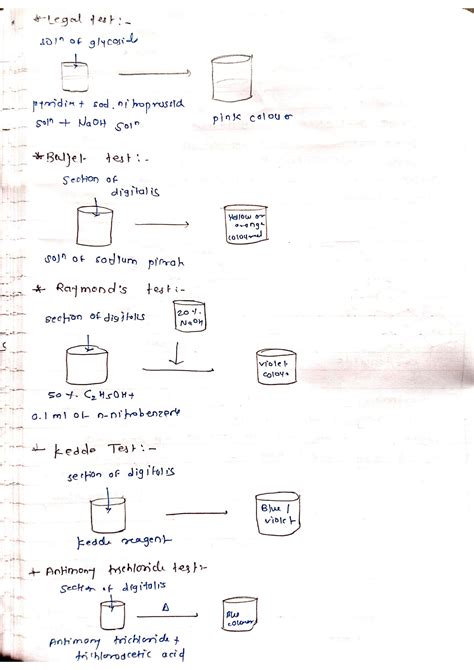 * Legal test:-
solⁿ of glycosid
pyridin + sod. nitroprussid
solⁿ + NaOH solⁿ
pink colour
* Baljet test:-
section of
digitalis
Yellow or
orange
coloured
solⁿ of sodium picrate
* Raymond's test:-
section of digitalis
20 %.
NaOH
violet
colour
50 %. C2H5OH +
0.1 ml of n-nitrobenzene
+ Kedde Test:-
section of digitalis
Blue /
violet
Kedde reagent
+ Antimony trichloride test:-
section of digitalis
Δ
Blue
colour
Antimony trichloride +
trichloroacetic acid